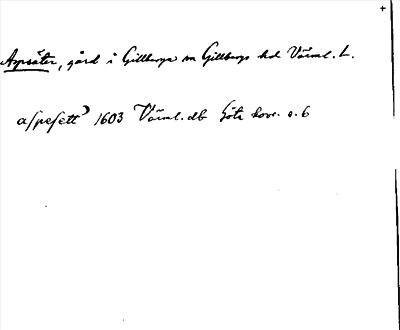 Aspsäter, gård i Gillberga sn Gillbergs hd Värml. L.
aspesett 1603 Värml. db Göta hovr. s. 6